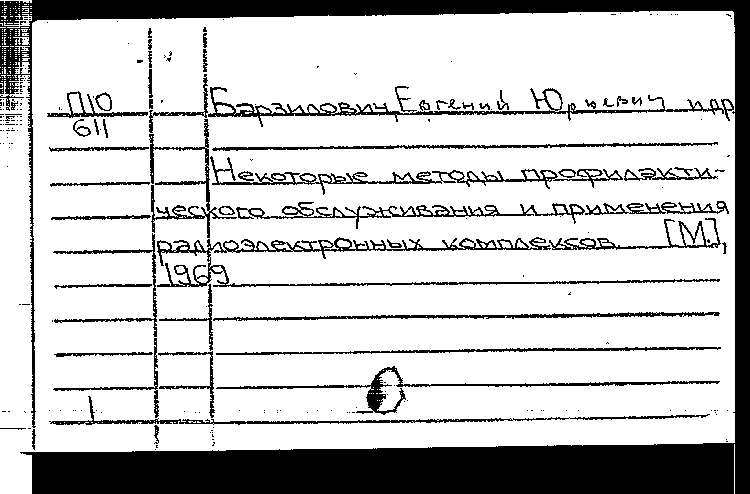 П10
611
Барзилович, Евгений Юрьевич и др
Некоторые методы профилакти-
ческого обслуживания и применения
радиоэлектронных комплексов. [М.],
1969
1